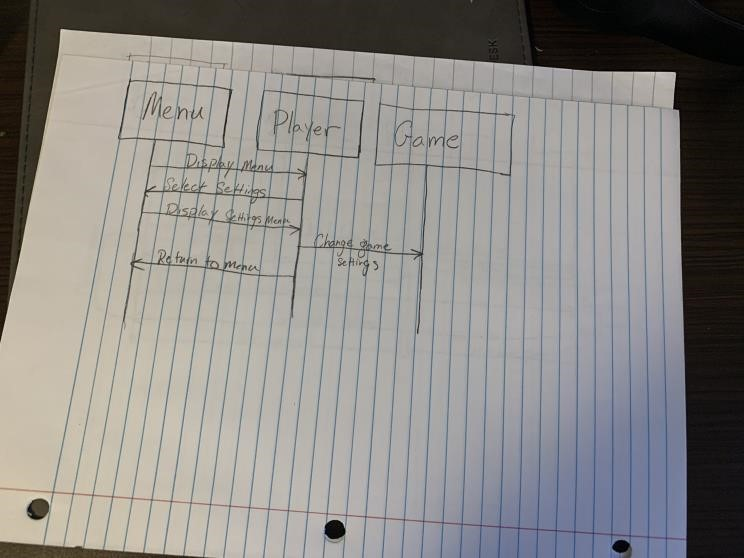 ESK
Menu
Player
Game
Display Menu
Select Settings
Display Settings Menu
Change game
settings
Return to menu